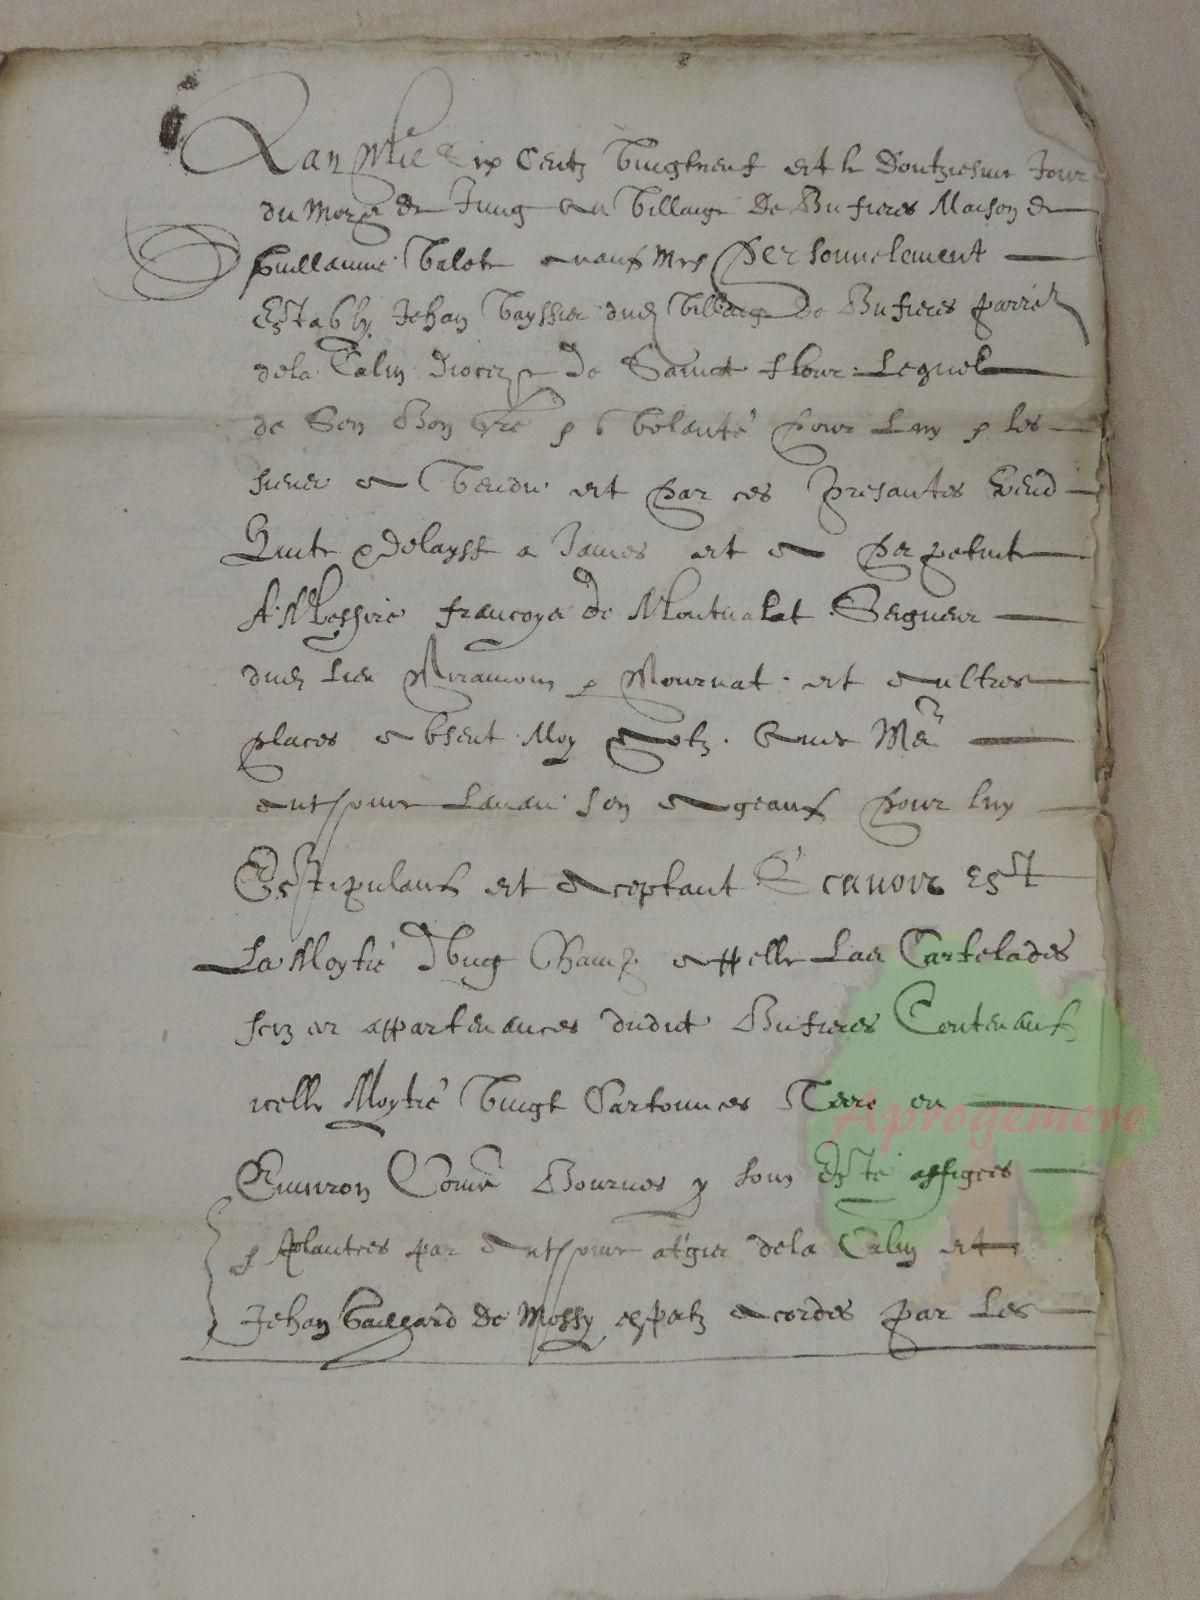 Lan Mil six Centz Vingtneuf et le Doutziesme Jour
du Moys de Jung au Villaige De Bufieres Maison de
Guillaume Valete avant Mes Personnelement
Estably Jehan Vayssier dud Villaige De Bufieres parrie
dela Calm Dioceze De Sainct flour Lequel
de Son Bon gre & volante Pour Luy & les
siens a Vendu et Par ces Presantes Vend
Quite & Delaysse a James et a Perpetuite
A Messire francoys de Montvalat Seigneur
dud Lieu Miramon & Mournat et aultres
places absent Moy Notz Avec Me
anthoine Lavau son ageant Pour luy
Estipulant et aceptant Scavoir Est
La Moytie Dung Champ appelle Las Cartelades
scis es appartenances dudict Bufieres Contenant
icelle Moytie Vingt Cartonnees Terre ou
Environ Comme Bournes y son este assigees
& plantees par anthoine atgier dela Calm et
Jehan Gaillard De Mossy expertz acordes par Les
Aprogemere